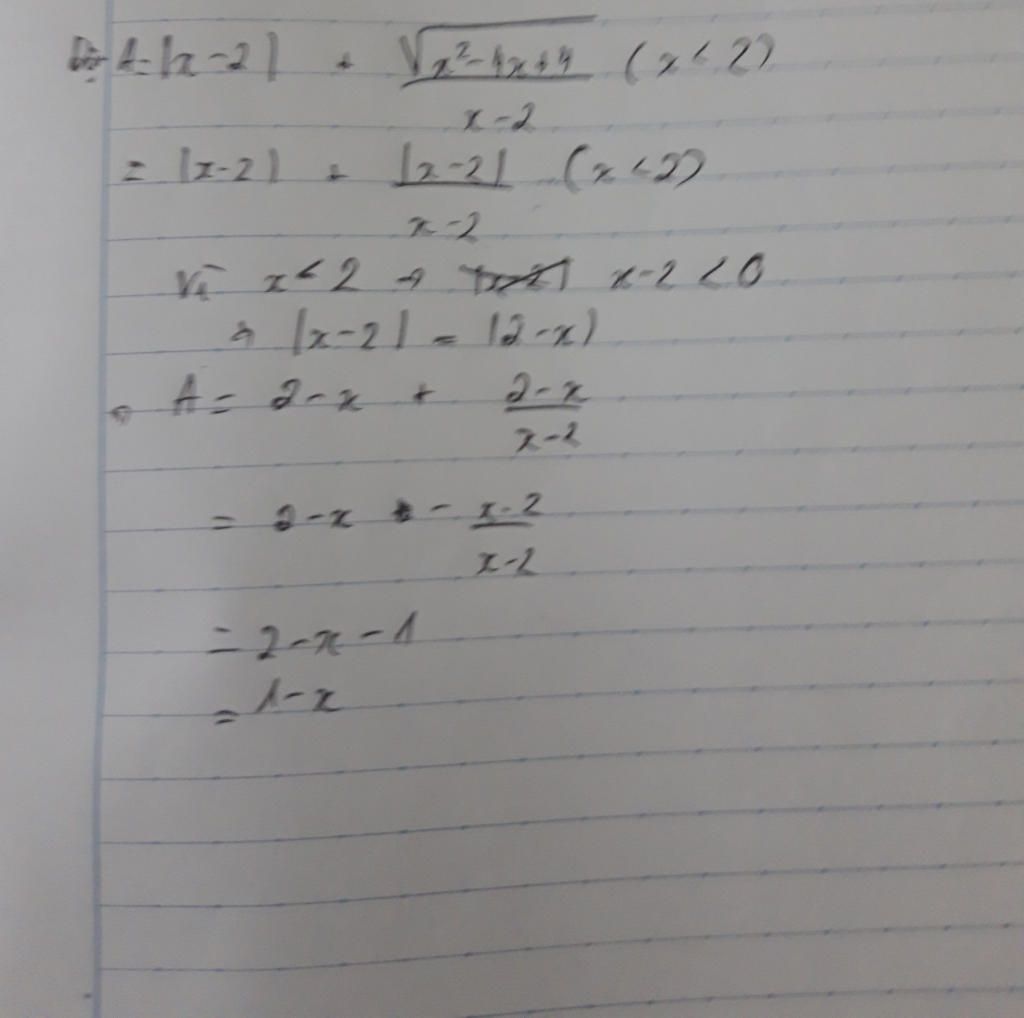 A = |x-2| + \frac{\sqrt{x^2-4x+4}}{x-2} (x < 2)
= |x-2| + \frac{|x-2|}{x-2} (x < 2)
Vì x < 2 → x-2 < 0
→ |x-2| = (2-x)
→ A = 2-x + \frac{2-x}{x-2}
= 2-x - \frac{x-2}{x-2}
= 2-x-1
= 1-x